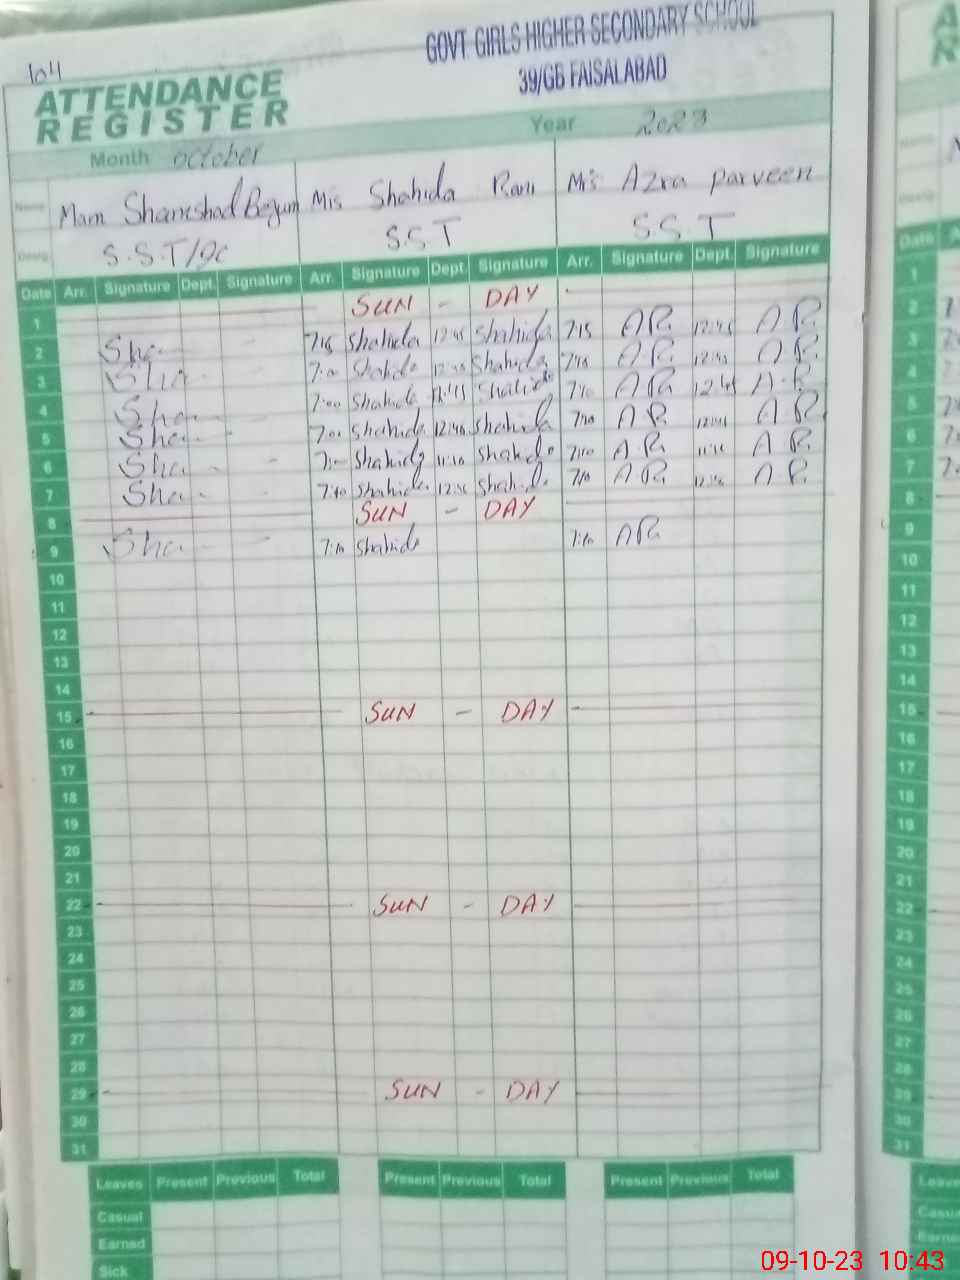 104
GOVT GIRLS HIGHER SECONDARY SCHOOL
39/GB FAISALABAD
ATTENDANCE
REGISTER
Month October Year 2023
Name Mam Shamshad Begum Mis Shahida Rani Mis Azra parveen
Desig. S.S.T/IC S.S.T S.S.T
Date Arr. Signature Dept. Signature Arr. Signature Dept. Signature Arr. Signature Dept. Signature
1 SUN - DAY
2 Sha 7:15 Shahida 12:45 Shahida 7:15 AR 12:45 AR
3 Sha 7:10 Shahida Shahida 7:10 AR AR
4 Sha 7:00 Shahida Shahida 7:10 AR 12:45 AR
5 Sha Shahida 12:40 Shahida 7:10 AR AR
6 Sha Shahida 11:10 Shahida 7:10 AR AR
7 Sha 7:10 Shahida Shahida 7:10 AR AR
8 SUN - DAY
9 Sha 7:10 Shahida 7:10 AR
10
11
12
13
14
15 SUN - DAY
16
17
18
19
20
21
22 SUN - DAY
23
24
25
26
27
28
29 SUN - DAY
30
31
Leaves Present Previous Total Present Previous Total Present Previous Total
Casual
Earned
Sick
09-10-23 10:43